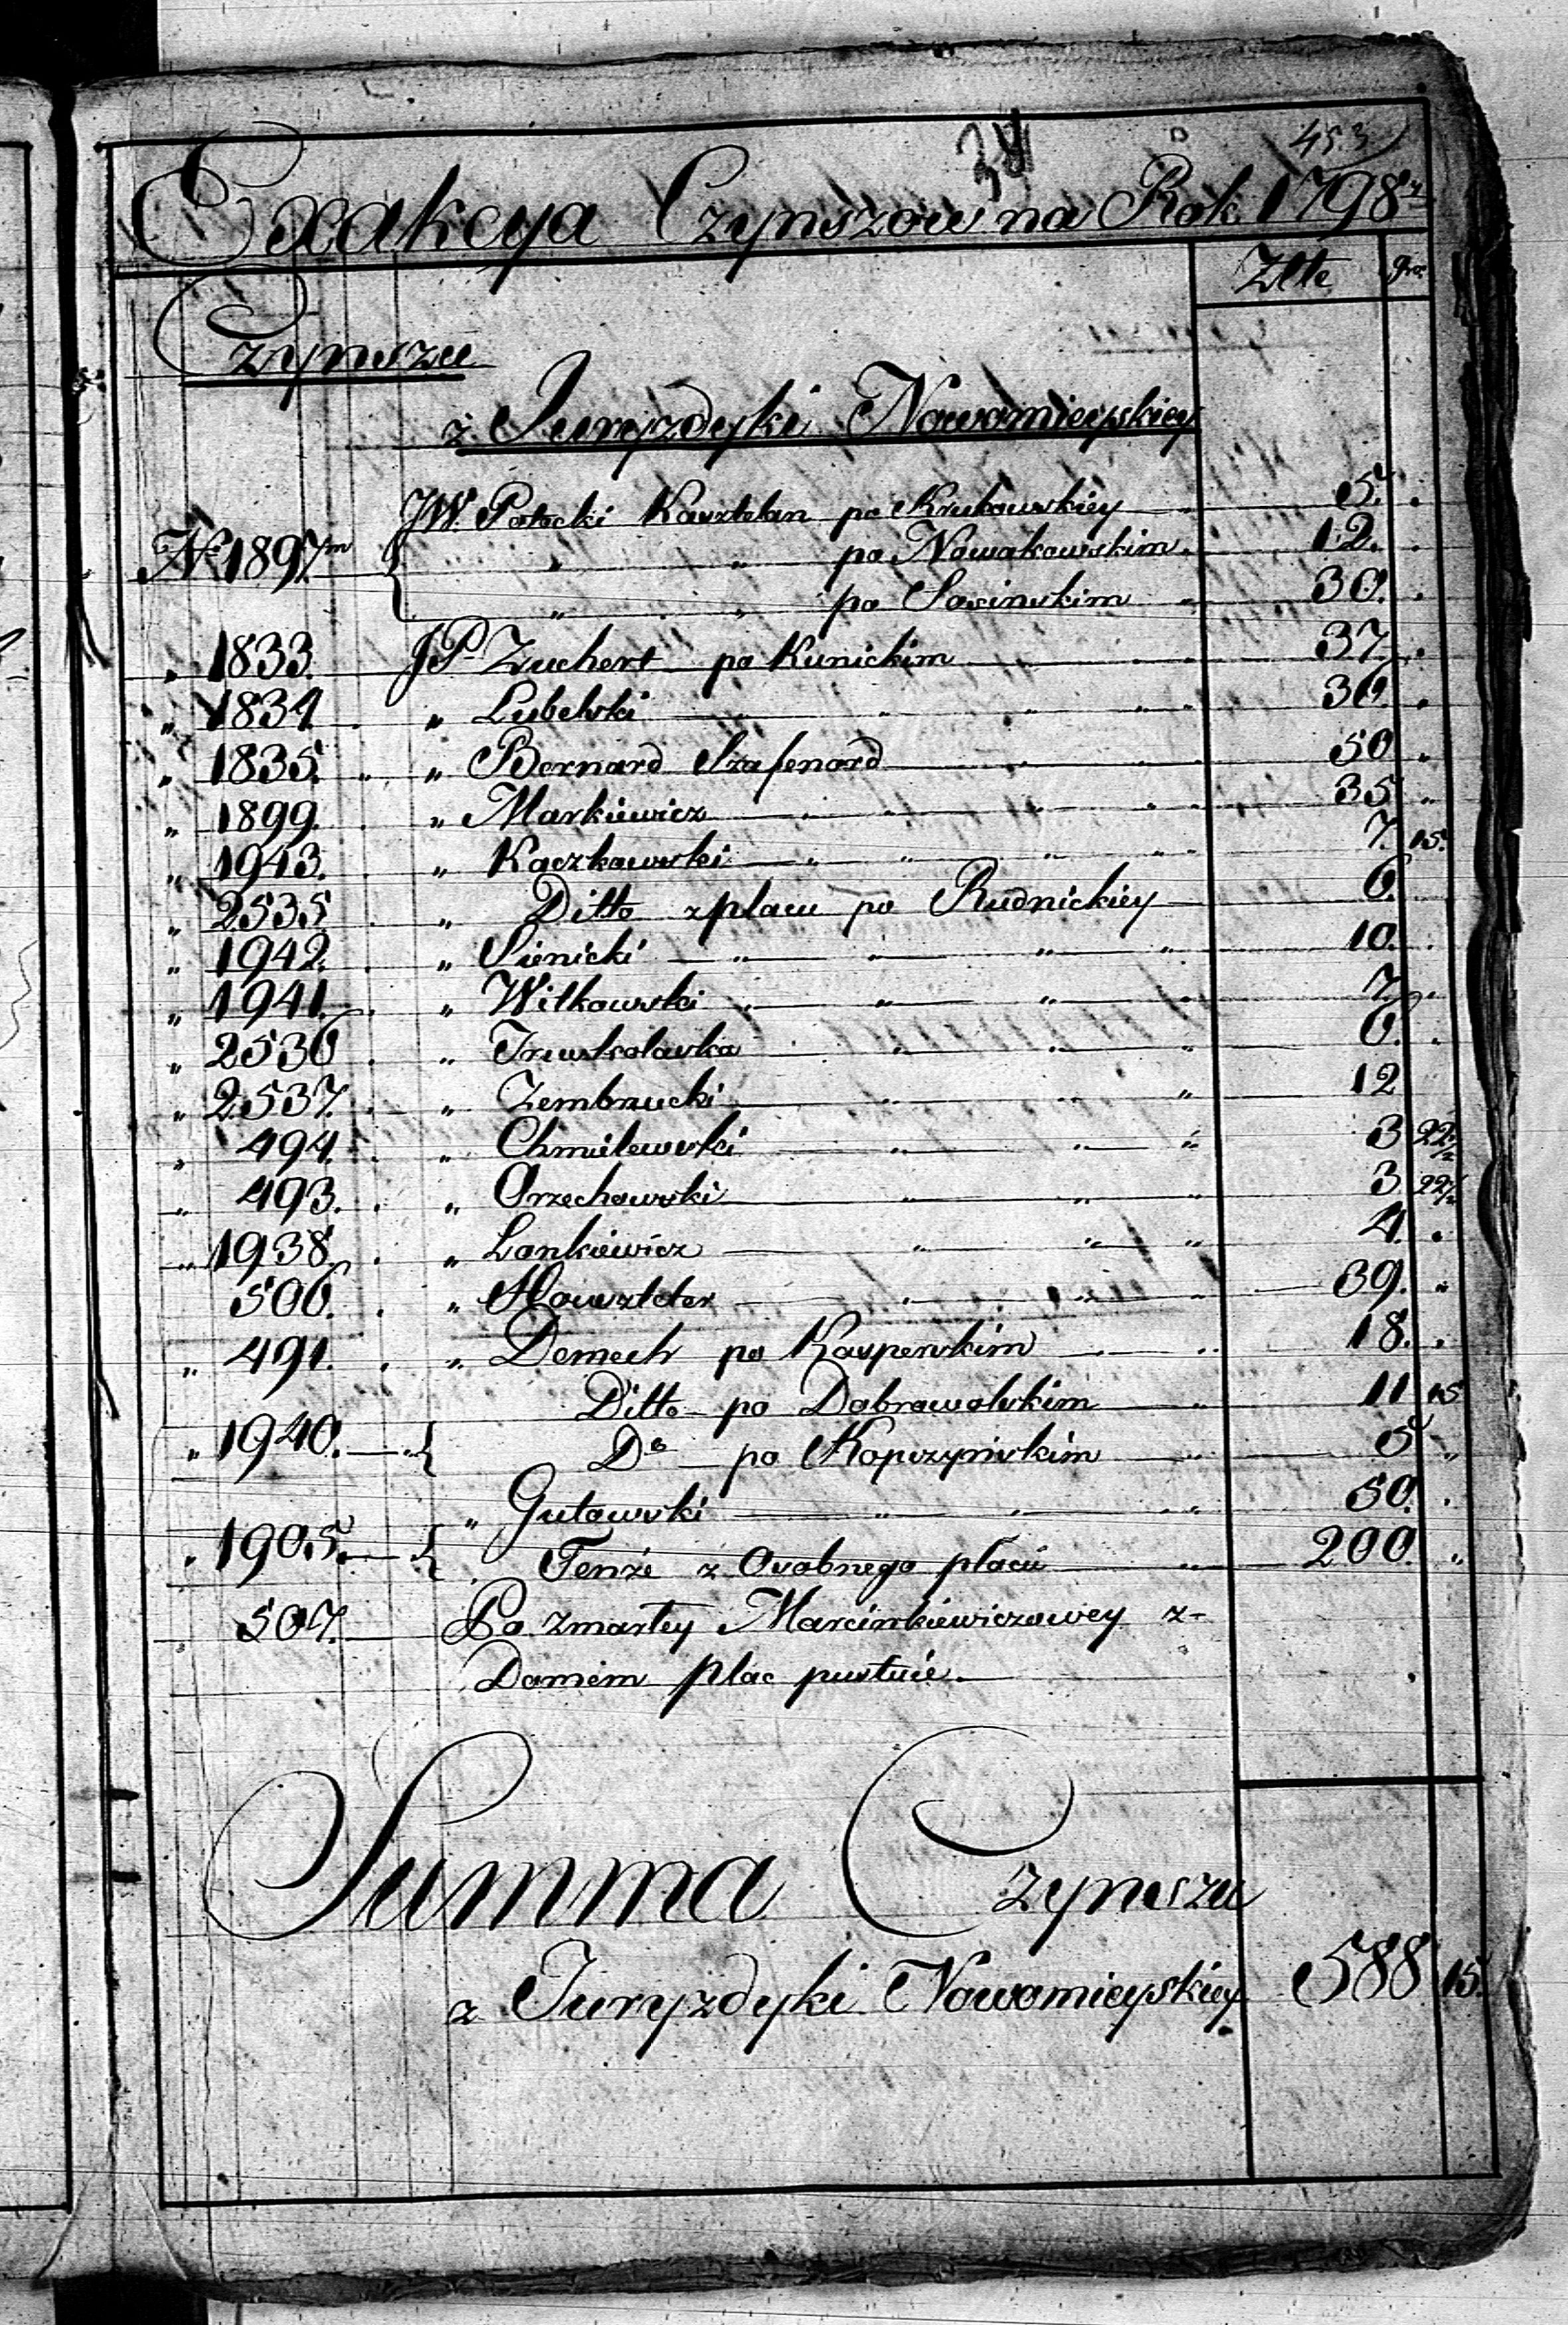 34 453
Exakcya Czynszow na Rok 1798
Złłe gro
Czynszu
z Juryzdyki Nowomieyskiey
JW. Potocki Kasztelan po Krukowskiey 5. .
No 1897 m { " " po Nowakowskim. 12. .
" " po Sosinskim " 30. .
" 1833. JP Zuchert po Kunickim " " 37. .
" 1834 . " Lubelski " " " " " 36. .
" 1835. " " Bernard Szafenord " " " 50 "
" 1899. . " Markiewicz " " " " " 35 "
" 1943. . " Kaczkowski " " " " " 7. 15.
" 2535 . " Ditto z placu po Rudnickiey 6. .
" 1942. . " Sienicki " " " " 10. .
" 1941. . " Witkowski " " " " 7. .
" 2536 . " Truskolaska " " " 6. .
" 2537. . " Zembrzucki " " " 12
" 494. . " Chmielewski " " " 3 22½
" 493. . " Orzechowski " " " 3. 22½
" 1938. . " Lankiewicz " " " 4. .
506. . " Housteter " " " 39. "
" 491. . " Demech po Kasperskim " " 18. .
Ditto po Dobrowolskim " 11 15
" 1940. { Do po Kopczynskim " 5 "
" Gutowski " " " " 50. .
" 1905. { " Tenże z Osobnego placu " 200. "
507. Po zmarłey Marcinkiewiczowey z
Domem plac pustuie. .
Summa Czynszu
z Juryzdyki Nowomieyskiey 588 15.